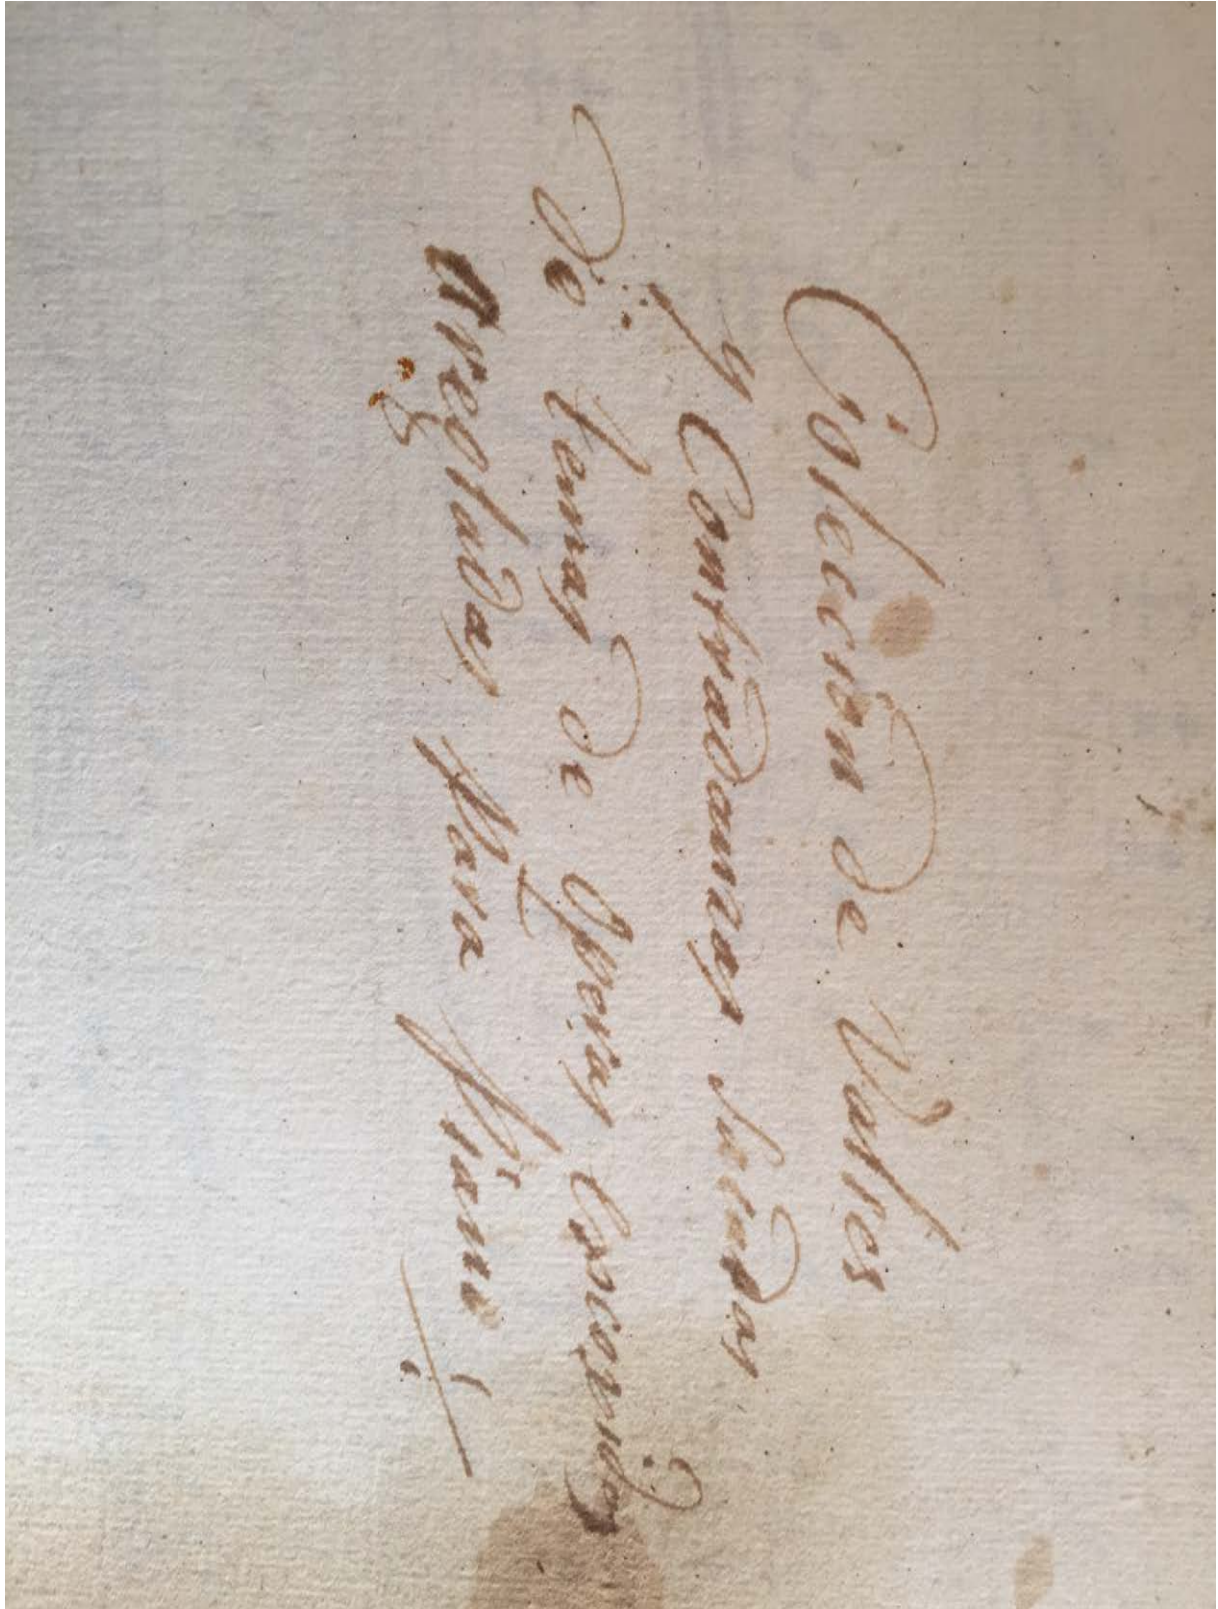 Colección de Valses
y Contradanzas sacadas
de temas de Operas Escogidas
Arregladas Para Piano